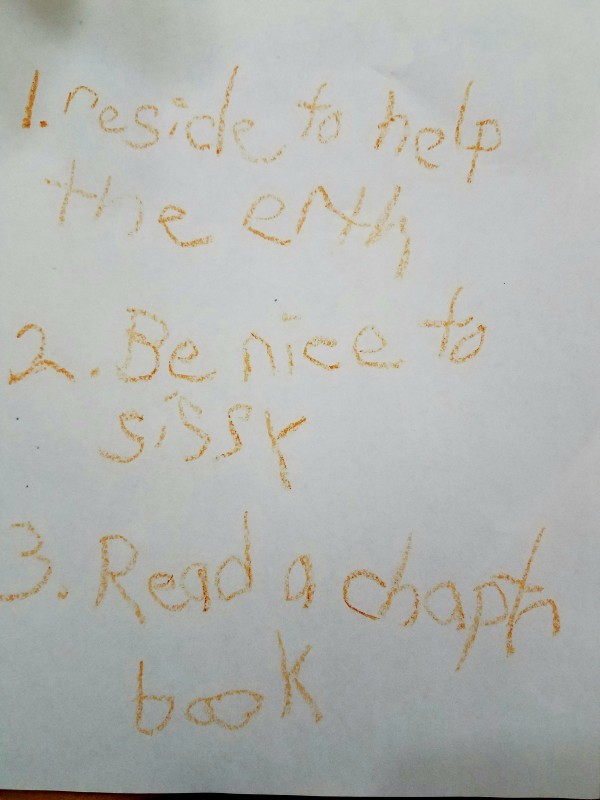 1. reside to help
the erth
2. Be nice to
sissy
3. Read a chaptr
book